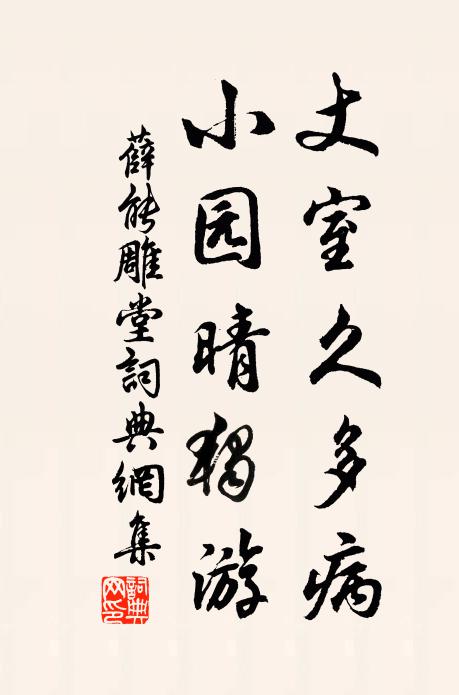 丈室久多病
小园晴独游
薛能雕堂詞典網集
詞典网印